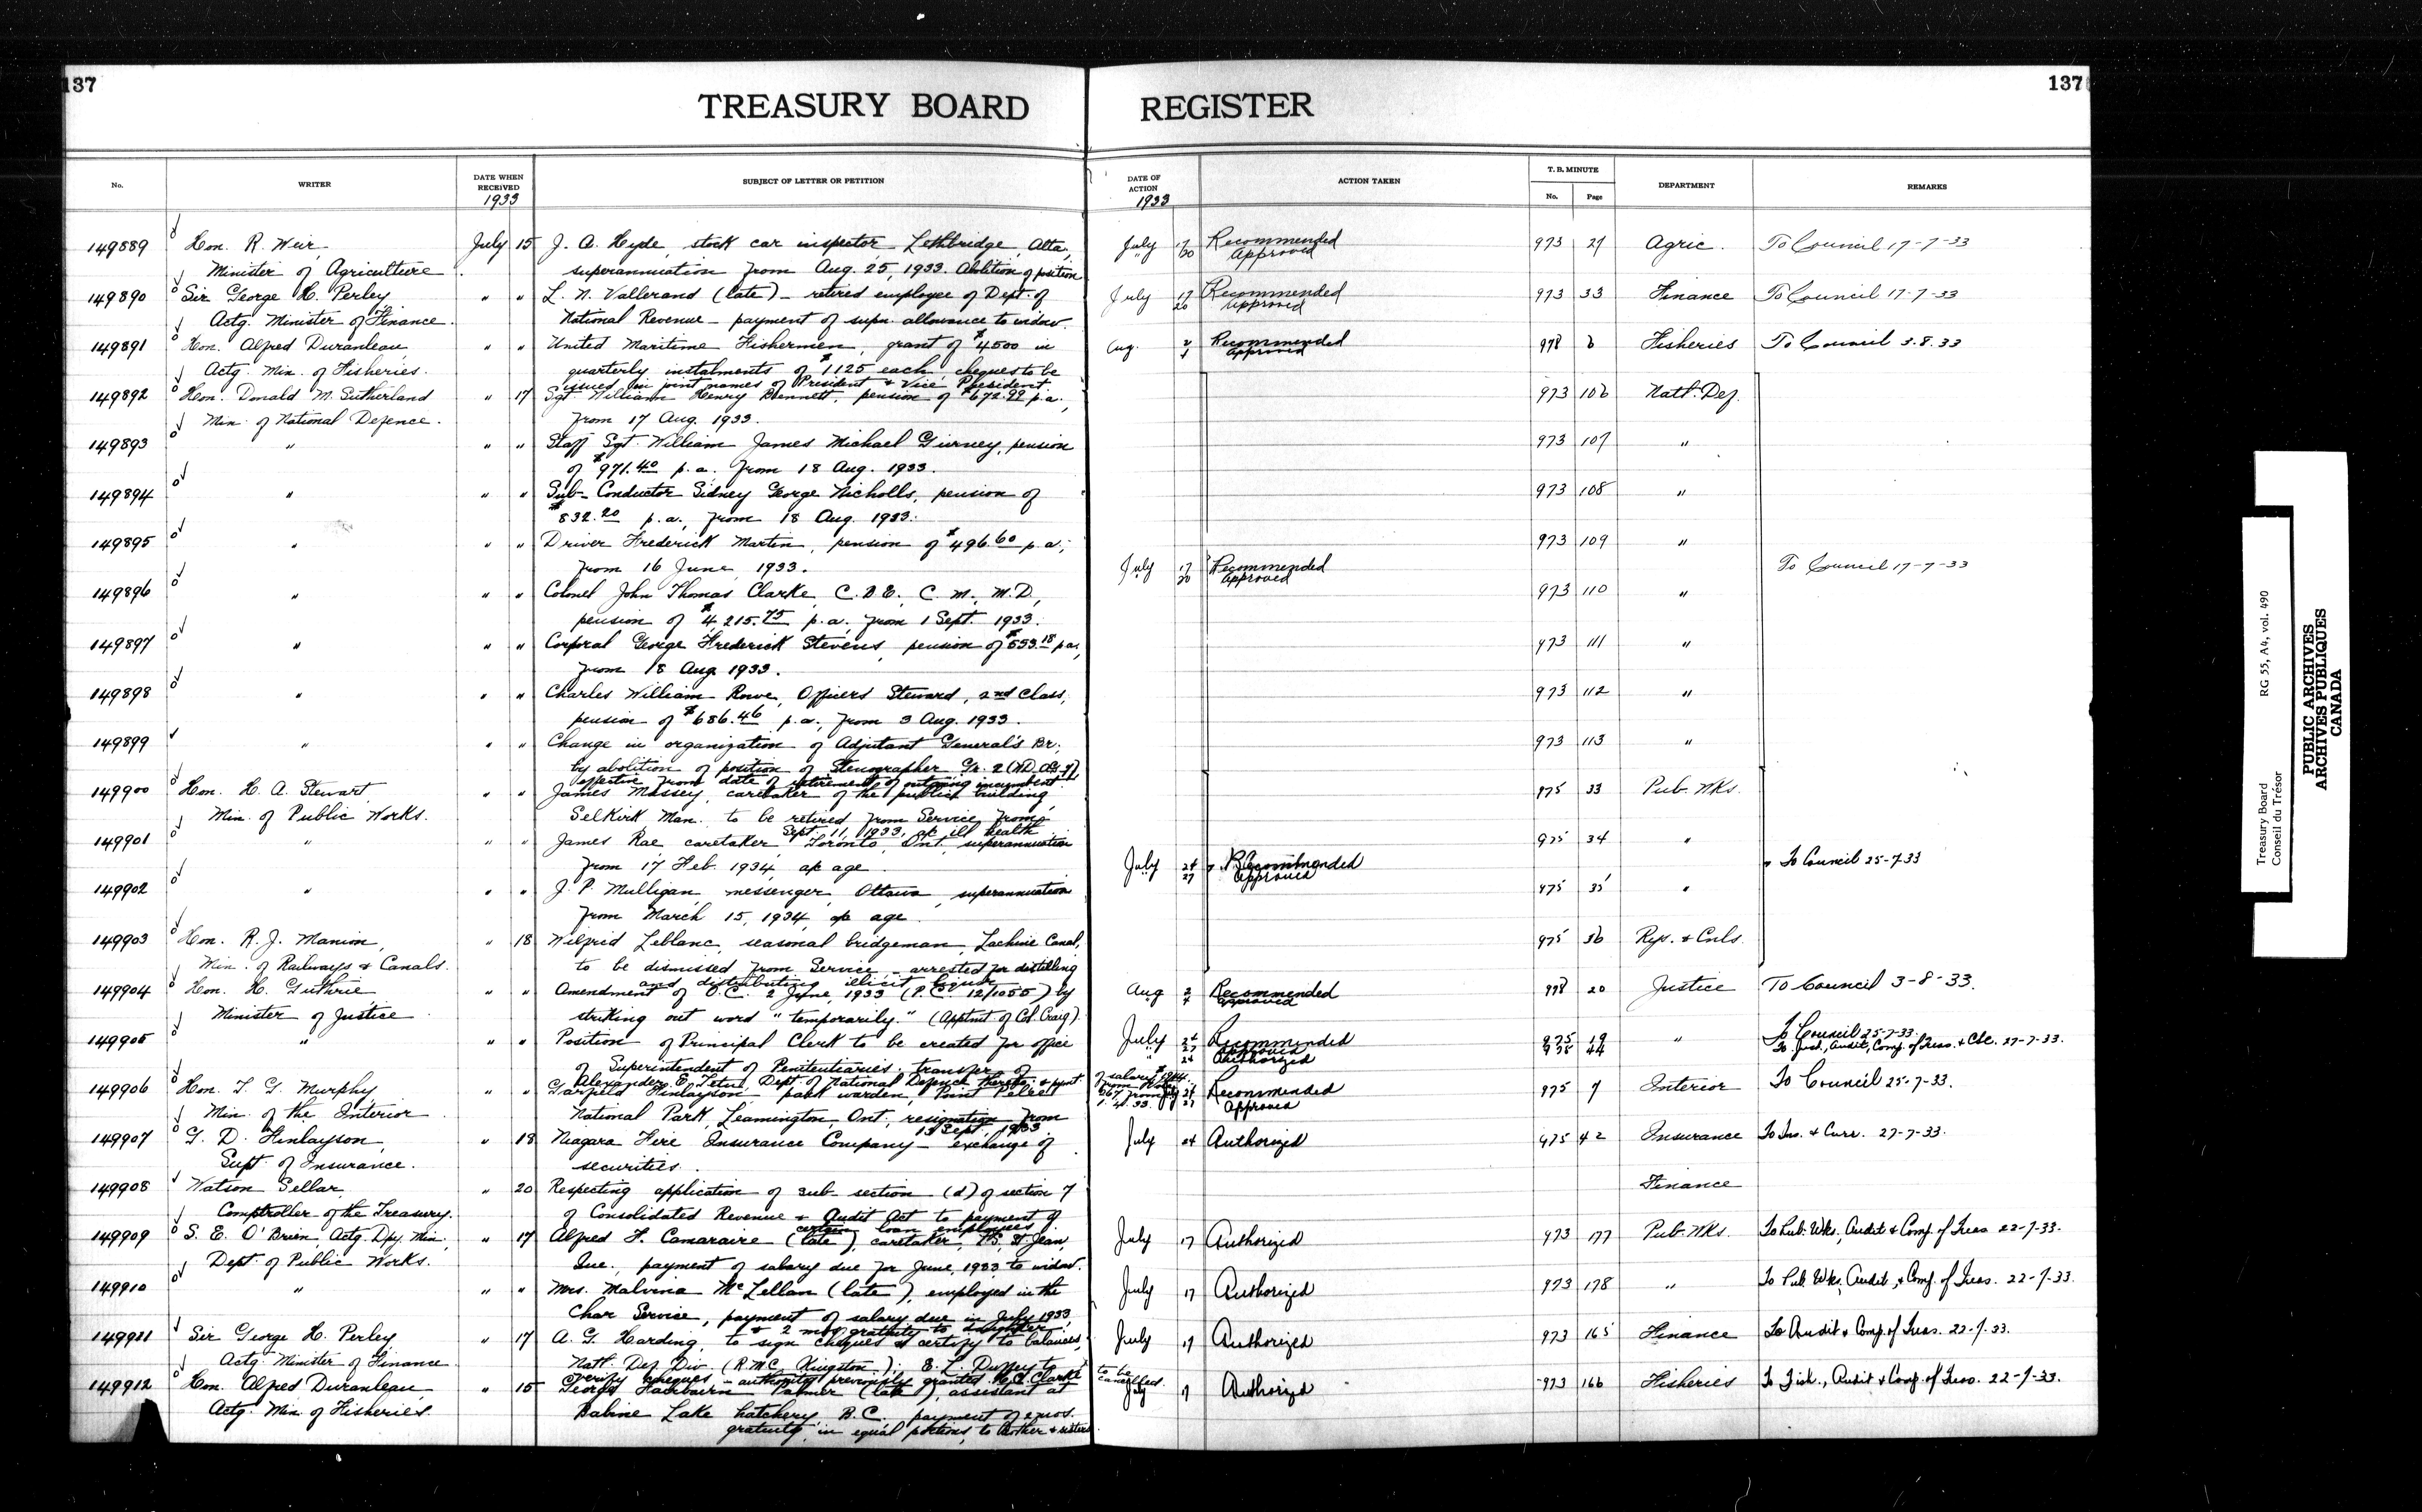 137
137
TREASURY BOARD REGISTER
No. WRITER DATE WHEN RECEIVED 1933 SUBJECT OF LETTER OR PETITION DATE OF ACTION 1933 ACTION TAKEN T. B. MINUTE No. Page DEPARTMENT REMARKS
149889 Hon. R. Weir, July 15 J. A. Hyde, stock car inspector Lethbridge, Alta, July 17 Recommended 973 27 Agric. To Council 17-7-33
Minister of Agriculture superannuation from Aug. 25, 1933. Abolition of position " 20 Approved
149890 Sir George H. Perley, " " L. N. Vallerand (late) - retired employee of Dept. of July 17 Recommended 973 33 Finance To Council 17-7-33
Actg. Minister of Finance. National Revenue - payment of supn. allowance to widow. 20 Approved
149891 Hon. Alfred Duranleau, " " United Maritime Fishermen, grant of $4500 in Aug. 2 Recommended 978 6 Fisheries To Council 3.8.33
Actg. Min. of Fisheries. quarterly instalments of $1125 each, cheques to be Approved
issued in joint names of President & Vice President.
149892 Hon. Donald M. Sutherland " 17 Sgt. William Henry Bennett, pension of $672.99 p.a., 973 106 Natl. Def.
Min. of National Defence. from 17 Aug. 1933.
149893 " " " Staff Sgt. William James Michael Gurney, pension 973 107 "
of $971.40 p.a. from 18 Aug. 1933.
149894 " " " Sub-Conductor Sidney George Nicholls, pension of 973 108 "
$832.20 p.a., from 18 Aug. 1933.
149895 " " " Driver Frederick Martin, pension of $496.60 p.a., 973 109 "
from 16 June, 1933. July 17 Recommended To Council 17-7-33
20 Approved
149896 " " " Colonel John Thomas Clarke, C.B.E., C.M., M.D., 973 110 "
pension of $4,215.75 p.a. from 1 Sept. 1933.
149897 " " " Corporal George Frederick Stevens, pension of $553.18 p.a., 973 111 "
from 18 Aug. 1933.
149898 " " " Charles William Rowe, Officers Steward, 2nd Class, 973 112 "
pension of $686.46 p.a., from 3 Aug. 1933.
149899 " " " Change in organization of Adjutant General's Br. 973 113 "
by abolition of position of Stenographer Gr. 2
effective from date of retirement of outgoing incumbent.
149900 Hon. H. A. Stewart, " " James Massey, caretaker of the public building, 975 33 Pub. Wks.
Min. of Public Works. Selkirk Man. to be retired from Service from
Sept. 11, 1933, a/c ill health
149901 " " " James Rae caretaker Toronto, Ont., superannuation 975 34 "
from 17 Feb. 1934, a/c age July 24 Recommended To Council 25-7-33
27 Approved
149902 " " " J. P. Mulligan, messenger, Ottawa, superannuation 975 35 "
from March 15, 1934, a/c age.
149903 Hon. R. J. Manion, " 18 Wilfrid Leblanc, seasonal bridgeman, Lachine Canal, 975 36 Rys. & Cnls.
Min. of Railways & Canals. to be dismissed from Service - arrested for distilling
and distributing illicit liquor
149904 Hon. H. Guthrie " " Amendment of O.C. 2 June, 1933 (P.C. 12/1055) by Aug 2 Recommended 978 20 Justice To Council 3-8-33.
Minister of Justice striking out word "temporarily." (Apptmt of Col. Craig). Approved
149905 " " " Position of Principal Clerk to be created for office July 24 Recommended 975 19 " To Council 25-7-33.
of Superintendent of Penitentiaries; transfer of 27 Approved 975 44 To Just., Audit, Comp. of Treas. & C.S.C. 27-7-33.
Alexander E. Dept. of National Defence thereto & " 24 Authorized
149906 Hon. T. G. Murphy, " " Garfield Finlayson park warden, Point Pelee July 24 Recommended 975 7 Interior To Council 25-7-33.
Min. of the Interior National Park, Leamington, Ont., resignation from 27 Approved
13 Sept. 1933
149907 G. D. Finlayson, " 18 Niagara Fire Insurance Company - exchange of July 24 Authorized 975 42 Insurance To Ins. & Curr. 27-7-33.
Supt. of Insurance. securities.
149908 Watson Sellar, " 20 Respecting application of sub-section (d) of section 7 Finance
Comptroller of the Treasury. of Consolidated Revenue & Audit Act to payment of
certain loan employees.
149909 S. E. O'Brien, Actg. Dpy. Min., " 17 Alfred F. Camaraire (late), caretaker, P.B., St. Jean, July 17 Authorized 973 177 Pub. Wks. To Pub. Wks., Audit & Comp. of Treas 22-7-33.
Dept. of Public Works. Que., payment of salary due for June, 1933 to widow.
149910 " " " Mrs. Malvina McLellan (late), employed in the July 17 Authorized 973 178 " To Pub. Wks, Audit, & Comp. of Treas. 22-7-33.
Char Service, payment of salary due in July 1933,
& 2 mos. gratuity to daughter.
149911 Sir George H. Perley, " 17 A. G. Harding, to sign cheques & certify to balances, July 17 Authorized 973 165 Finance To Audit & Comp. of Treas. 22-7-33.
Actg. Minister of Finance Natl. Def. Div. (R.M.C. Kingston); E. L. Duffey to
verify cheques - authority previously granted Clarke to be cancelled.
149912 Hon. Alfred Duranleau, " 15 George Fairbairn Palmer (late), assistant at July 17 Authorized 973 166 Fisheries To Fish., Audit & Comp. of Treas. 22-7-33.
Actg. Min. of Fisheries. Babine Lake hatchery, B.C., payment of 2 mos.
gratuity, in equal portions, to brother & sisters
Treasury Board RG 55, A4, vol. 490
Conseil du Trésor
PUBLIC ARCHIVES
ARCHIVES PUBLIQUES
CANADA